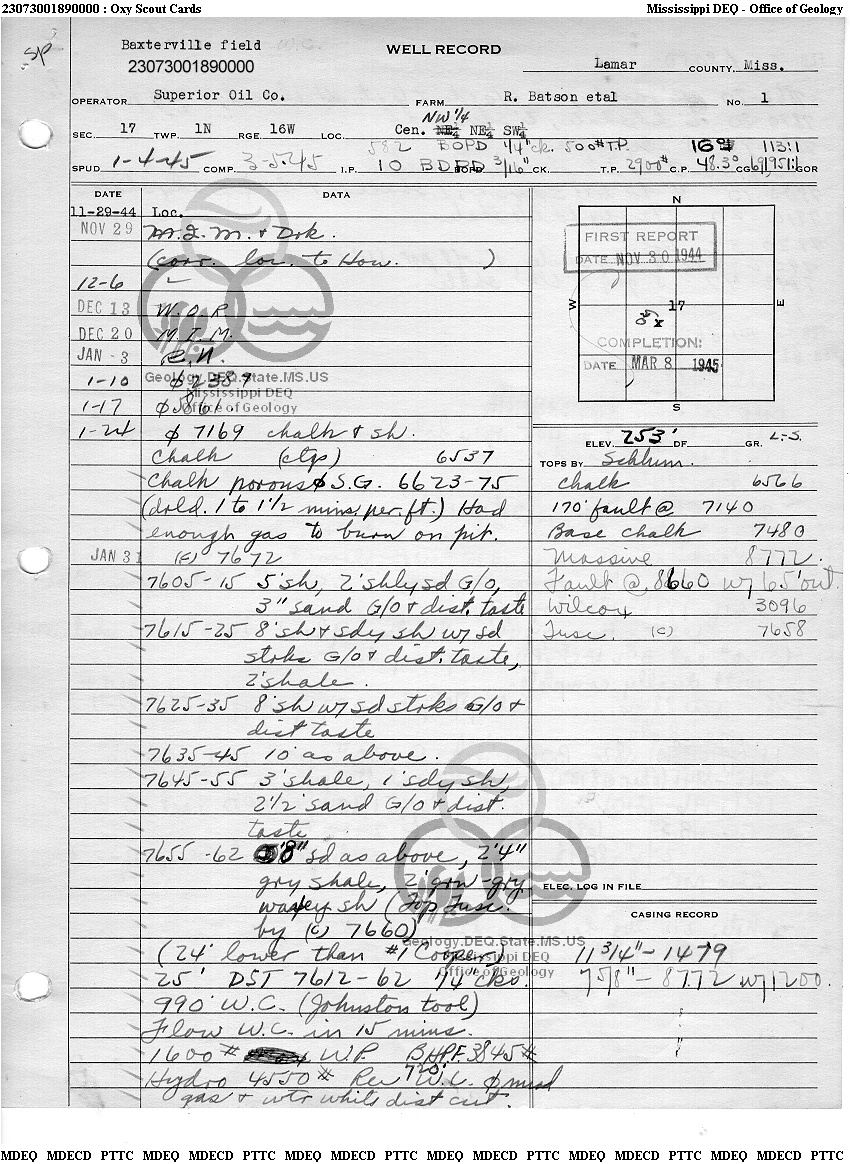 23073001890000 : Oxy Scout Cards
Mississippi DEQ - Office of Geology
SP
Baxterville field
23073001890000
WELL RECORD
Lamar COUNTY, Miss.
OPERATOR Superior Oil Co. FARM R. Batson etal NO. 1
NW 1/4
SEC. 17 TWP. 1N RGE. 16W LOC. Cen. NE¼ NE¼ SW¼
582 BOPD 1/4" ck. 500# T.P. 113:1
SPUD 1-4-45 COMP. 3-5-45 I.P. 10 BDPD 3/16" CK. T.P. 2900# C.P. 48.3° CG 61,951:1 GOR
DATE DATA
11-29-44 Loc.
NOV 29 M.I.M. & Drk.
(corr. loc. to How. )
12-6 〃
DEC 13 W.O.R.
DEC 20 M.I.M.
JAN -3 R.U.
1-10 φ 2389
1-17 φ 5861.
1-24 φ 7169 chalk & sh.
Chalk (ctg) 6537
Chalk porous & S.G. 6623-75
(drld. 1 to 1 1/2 mins. per. ft.) Had
enough gas to burn on pit.
JAN 31 (c) 7672
7605-15 5' sh, 2' shly sd G/O,
3" sand G/O & dist. taste
7615-25 8' sh & sdy sh w/ sd
strks G/O & dist. taste,
2' shale.
7625-35 8' sh w/ sd strks G/O &
dist taste
7635-45 10' as above.
7645-55 3' shale, 1' sdy sh,
2 1/2' sand G/O & dist.
taste
7655-62 8" sd as above, 2'4"
gry shale, 2' grn-gry
waxey sh (Top Tusc.
by (c) 7660)
(24' lower than #1 Cooper)
25' DST 7612-62 1/4" cks.
990' W.C. (Johnston tool)
Flow W.C. in 15 mins.
1600# W.P. BHPF. 3845#
Hydro 4550# Rec 720' W.C. φ mud
gas & wtr white dist cut.
N
W
E
S
17
FIRST REPORT
DATE NOV 30 1944
COMPLETION:
DATE MAR 8 1945
ELEV. 253' DF GR. L.-S.
TOPS BY Schlum.
Chalk 6566
170' fault @ 7140
Base chalk 7480
Massive 8772.
Fault @ 8660 w/ 65' out.
Wilcox 3096
Tusc. (c) 7658
ELEC. LOG IN FILE
CASING RECORD
11 3/4" - 1479
7 5/8" - 8772 w/ 1200.
Geology.DEQ.State.MS.US
Mississippi DEQ
Office of Geology
Geology.DEQ.State.MS.US
Mississippi DEQ
Office of Geology
MDEQ MDECD PTTC MDEQ MDECD PTTC MDEQ MDECD PTTC MDEQ MDECD PTTC MDEQ MDECD PTTC